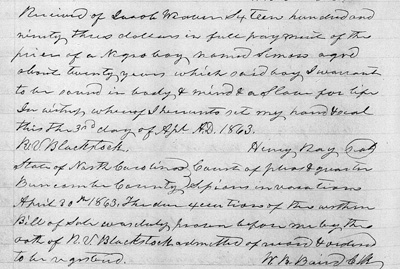 Received of Jacob Weaver Sixteen hundred and
ninety three dollars in full payment of the
price of a Negro boy named Simon aged
about twenty years which said boy I warrant
to be sound in body & mind & a Slave for life
In witness whereof I hereunto set my hand & seal
this the 3rd day of Apl. A.D. 1863.
N.V Blackstock. Henry Ray Seal
State of North Carolina Court of pleas & quarter
Buncombe County Sessions in vacation
April 30th 1863. The due execution of the within
Bill of Sale was duly proven before me by the
oath of N.V Blackstock admitted of record & ordered
to be registered. W. B. Baird Clk